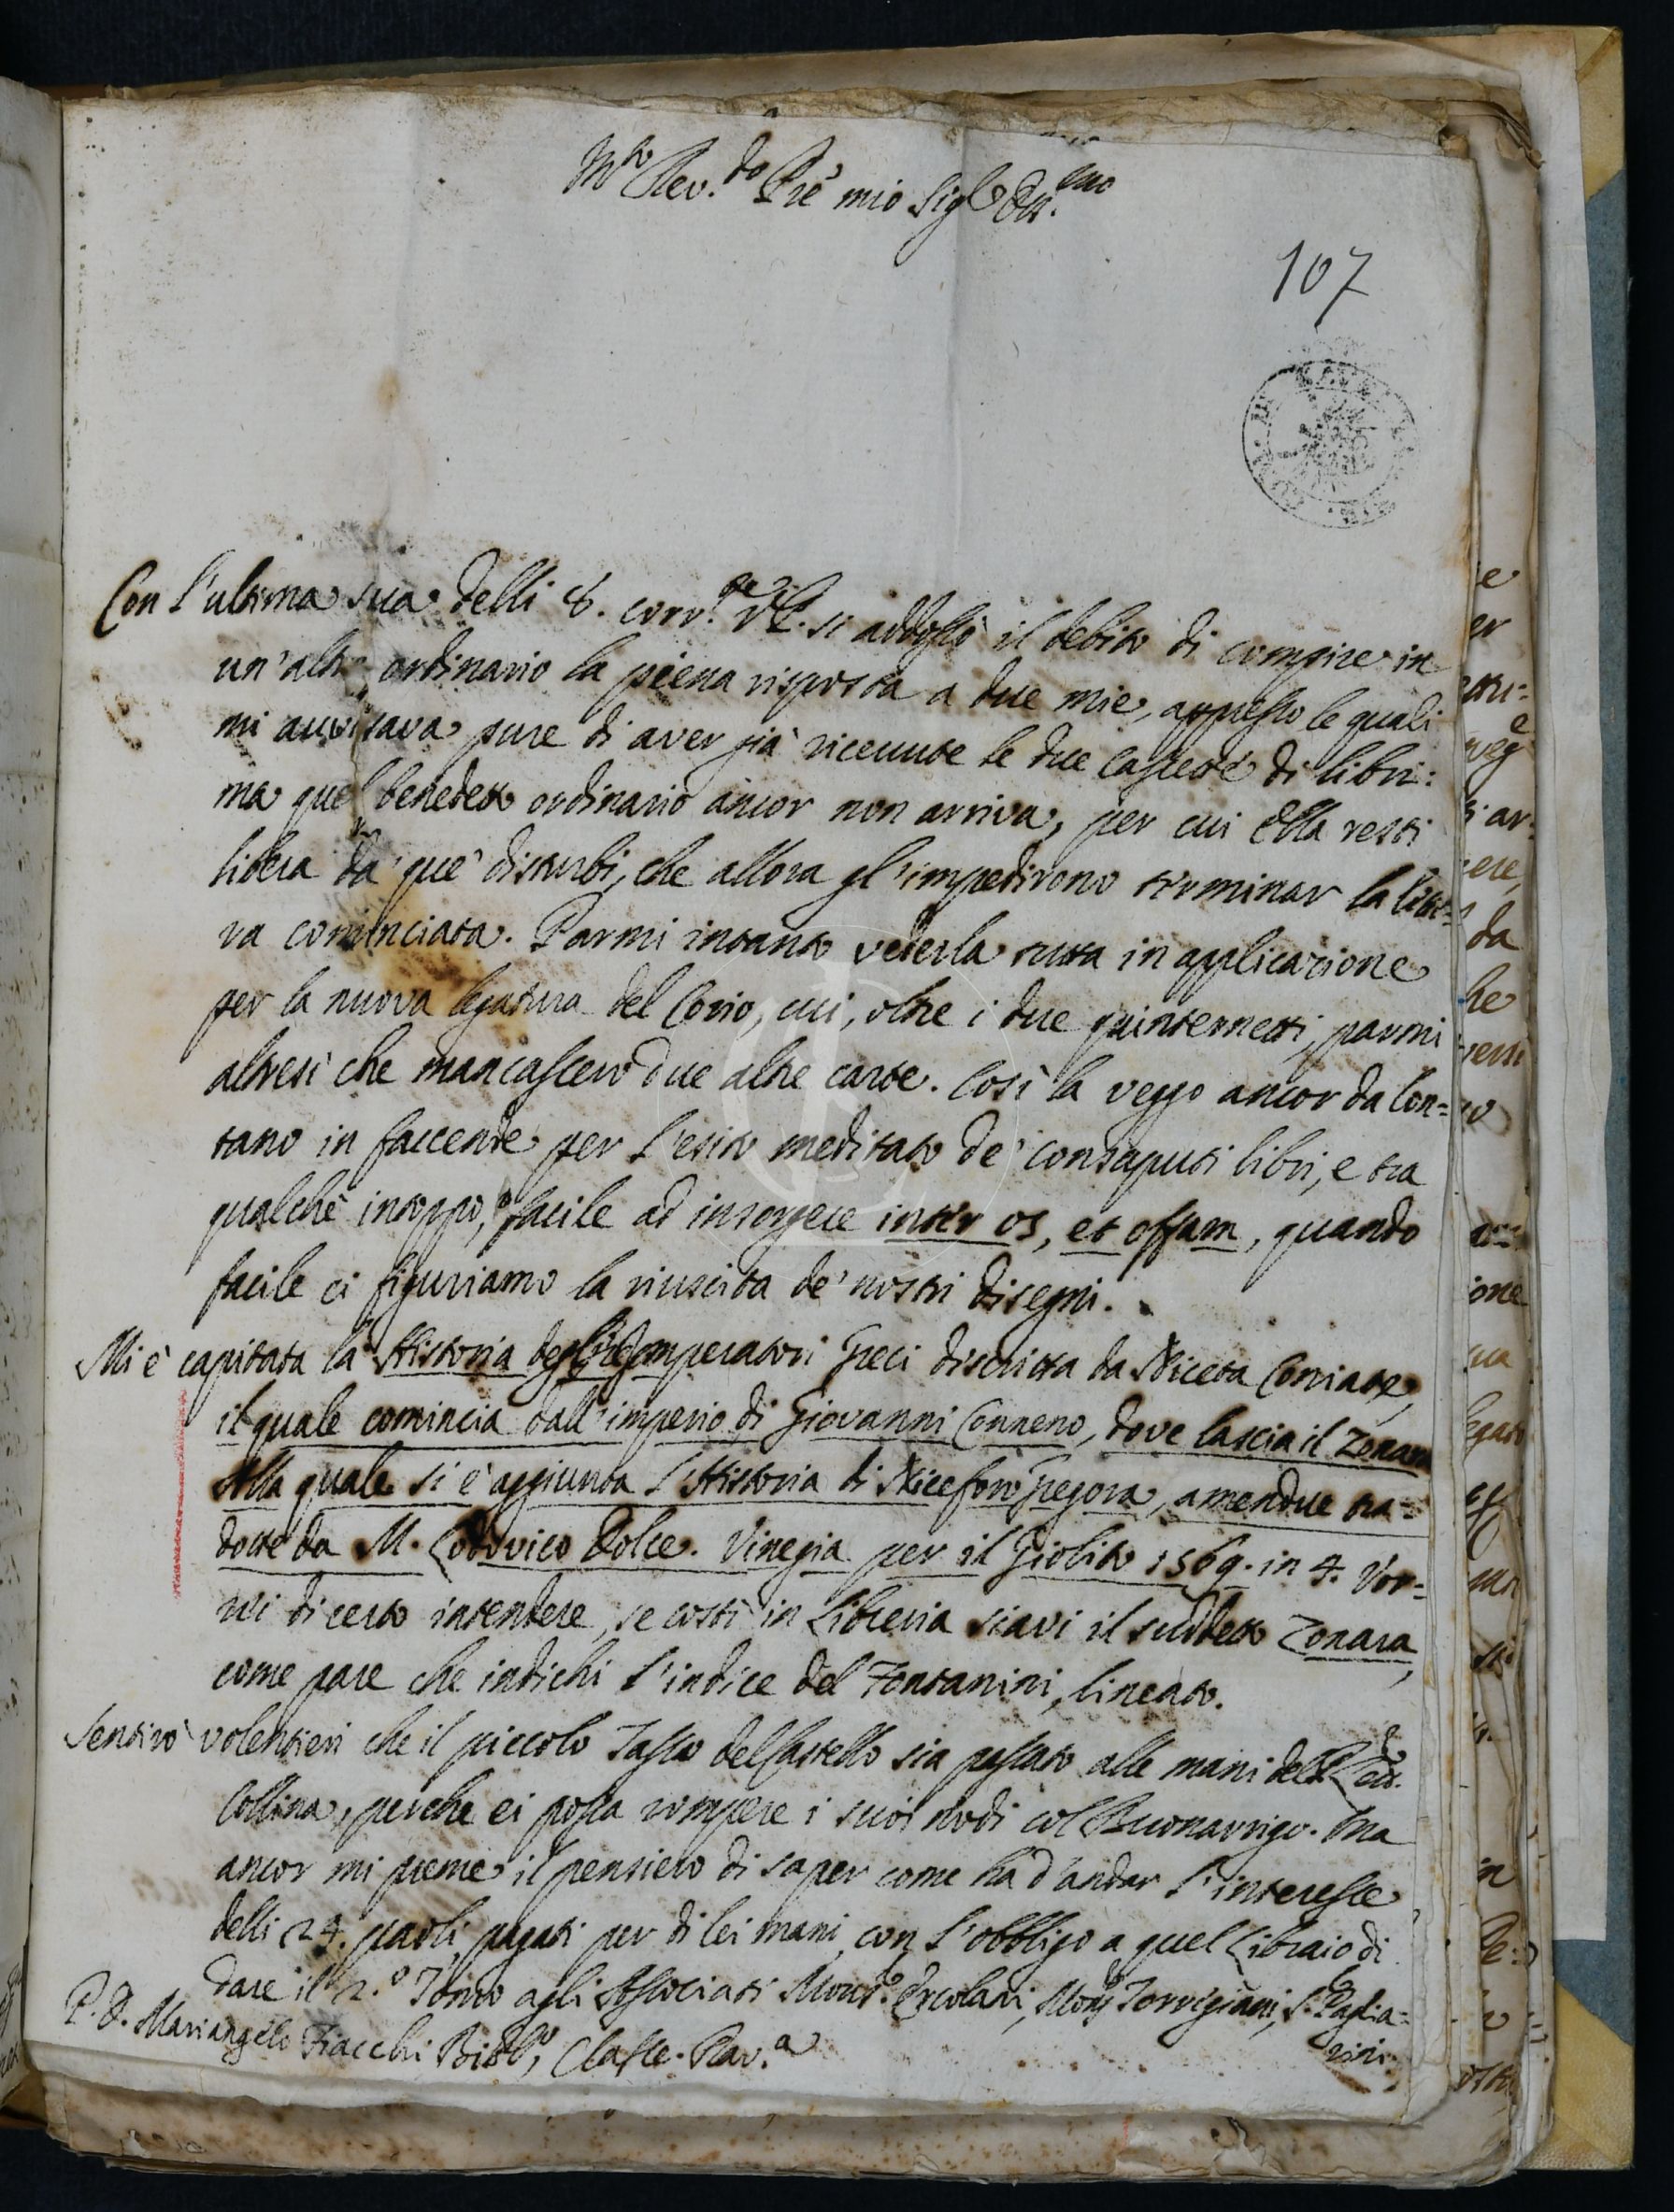 M.to Rev.do Pre mio Sig.
107
Con l'ultima sua delli 8. corr.te V.P. si addossò il debito di compire in
un'altro ordinario la piena risposta a due mie, appresso le quali
mi avvisava pure di aver già ricevute le due cassette di libri:
ma quel benedetto ordinario ancor non arriva, per cui Ella resti
libera da' que' disturbi, che allora gl'impedirono terminar la lette=
ra cominciata. Parmi intanto vederla tutta in applicazione
per la nuova legatura del Corio, cui, oltre i due quinternetti, parmi
altresì che mancassero due altre carte. Così la veggo ancor da lon=
tano in faccende per l'esito meditato de' consaputi libri, e tra
qualche intoppo, facile ad insorgere inter os, et offam, quando
facile ci figuriamo la riuscita de' nostri disegni.
Mi è capitata la Historia degli Imperatori Greci discritta da Niceta Coniate,
il quale comincia dall'imperio di Giovanni Conneno, dove lascia il Zonara
Alla quale si è aggiunta l'Historia di Niceforo Gregora, amendue tra=
dotte da M. Lodovico Dolce. Vinegia per il Giolito 1569. in 4. Vor=
rei di certo intendere, se costì in Libreria siavi il suddetto Zonara,
come pare che indichi l'indice del Fontanini, lineato.
Sentirò volentieri che il piccolo Tasso del Castello sia passato alle mani del
Collina, perche ei possa rompere i suoi nodi col Buonarrigo. Ma
ancor mi preme il pensiero di saper come ha d'andar l'interesse
delli 24. paoli pagati per di lei mani, con l'obbligo a quel Libraio di
dare il 2.o Tomo agli Associati Mons.r Ercolani, Mons.r Torrigiani, S. Paglia=
rini
P. D. Mariangelo Fiacchi Bibl.o Classe. Rav.a